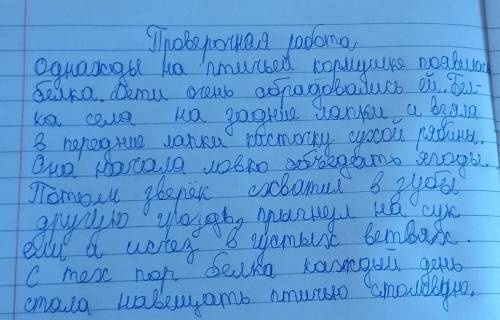 Проверочная работа.
Однажды на птичьей кормушке появилась
белка. Дети очень обрадовались ей. Бел-
ка села на задние лапки и взяла
в передние лапки кисточку сухой рябины.
Она начала ловко объедать ягоды.
Потом зверёк схватил в зубы
другую гроздь, прыгнул на сук
ели и исчез в густых ветвях.
С тех пор белка каждый день
стала навещать птичью столовую.